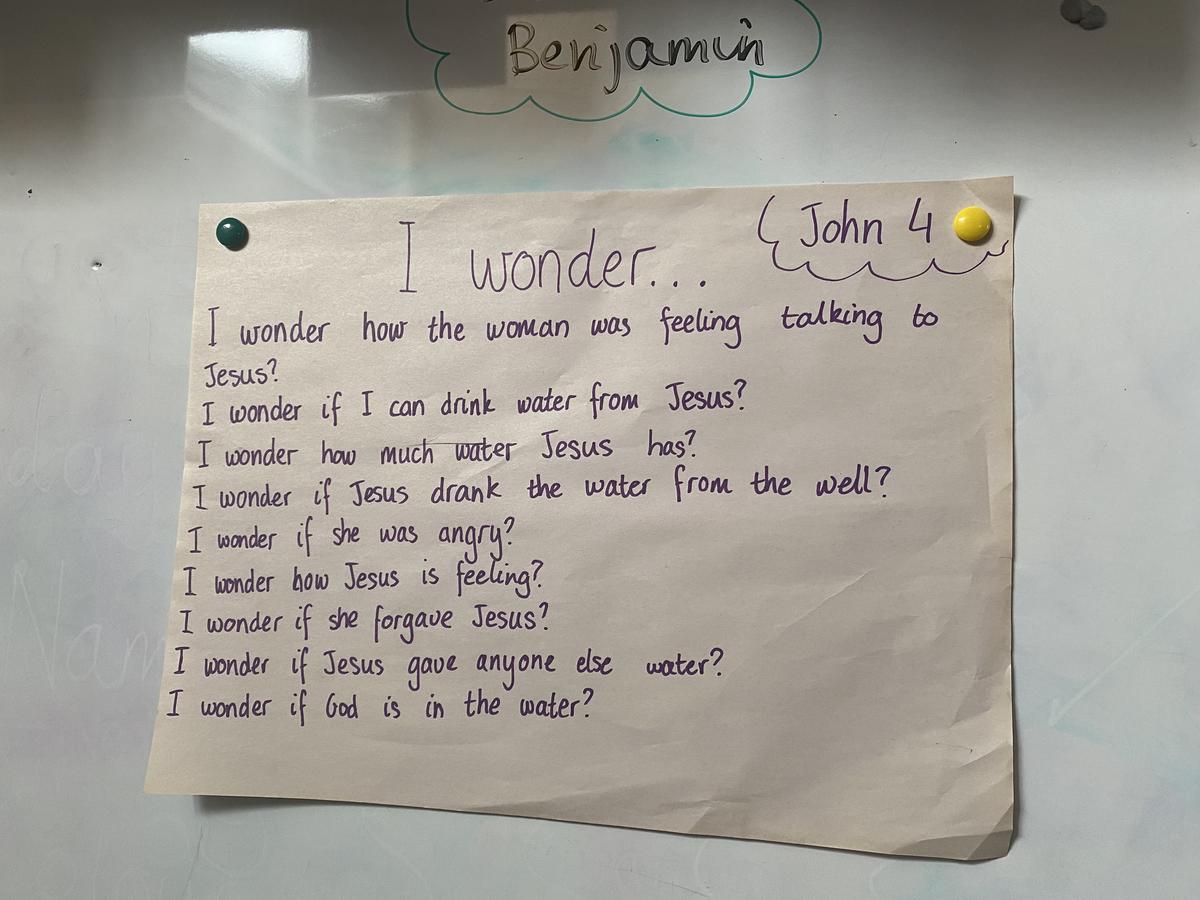 Benjamin
I wonder...
John 4
I wonder how the woman was feeling talking to
Jesus?
I wonder if I can drink water from Jesus?
I wonder how much water Jesus has?
I wonder if Jesus drank the water from the well?
I wonder if she was angry?
I wonder how Jesus is feeling?
I wonder if she forgave Jesus?
I wonder if Jesus gave anyone else water?
I wonder if God is in the water?